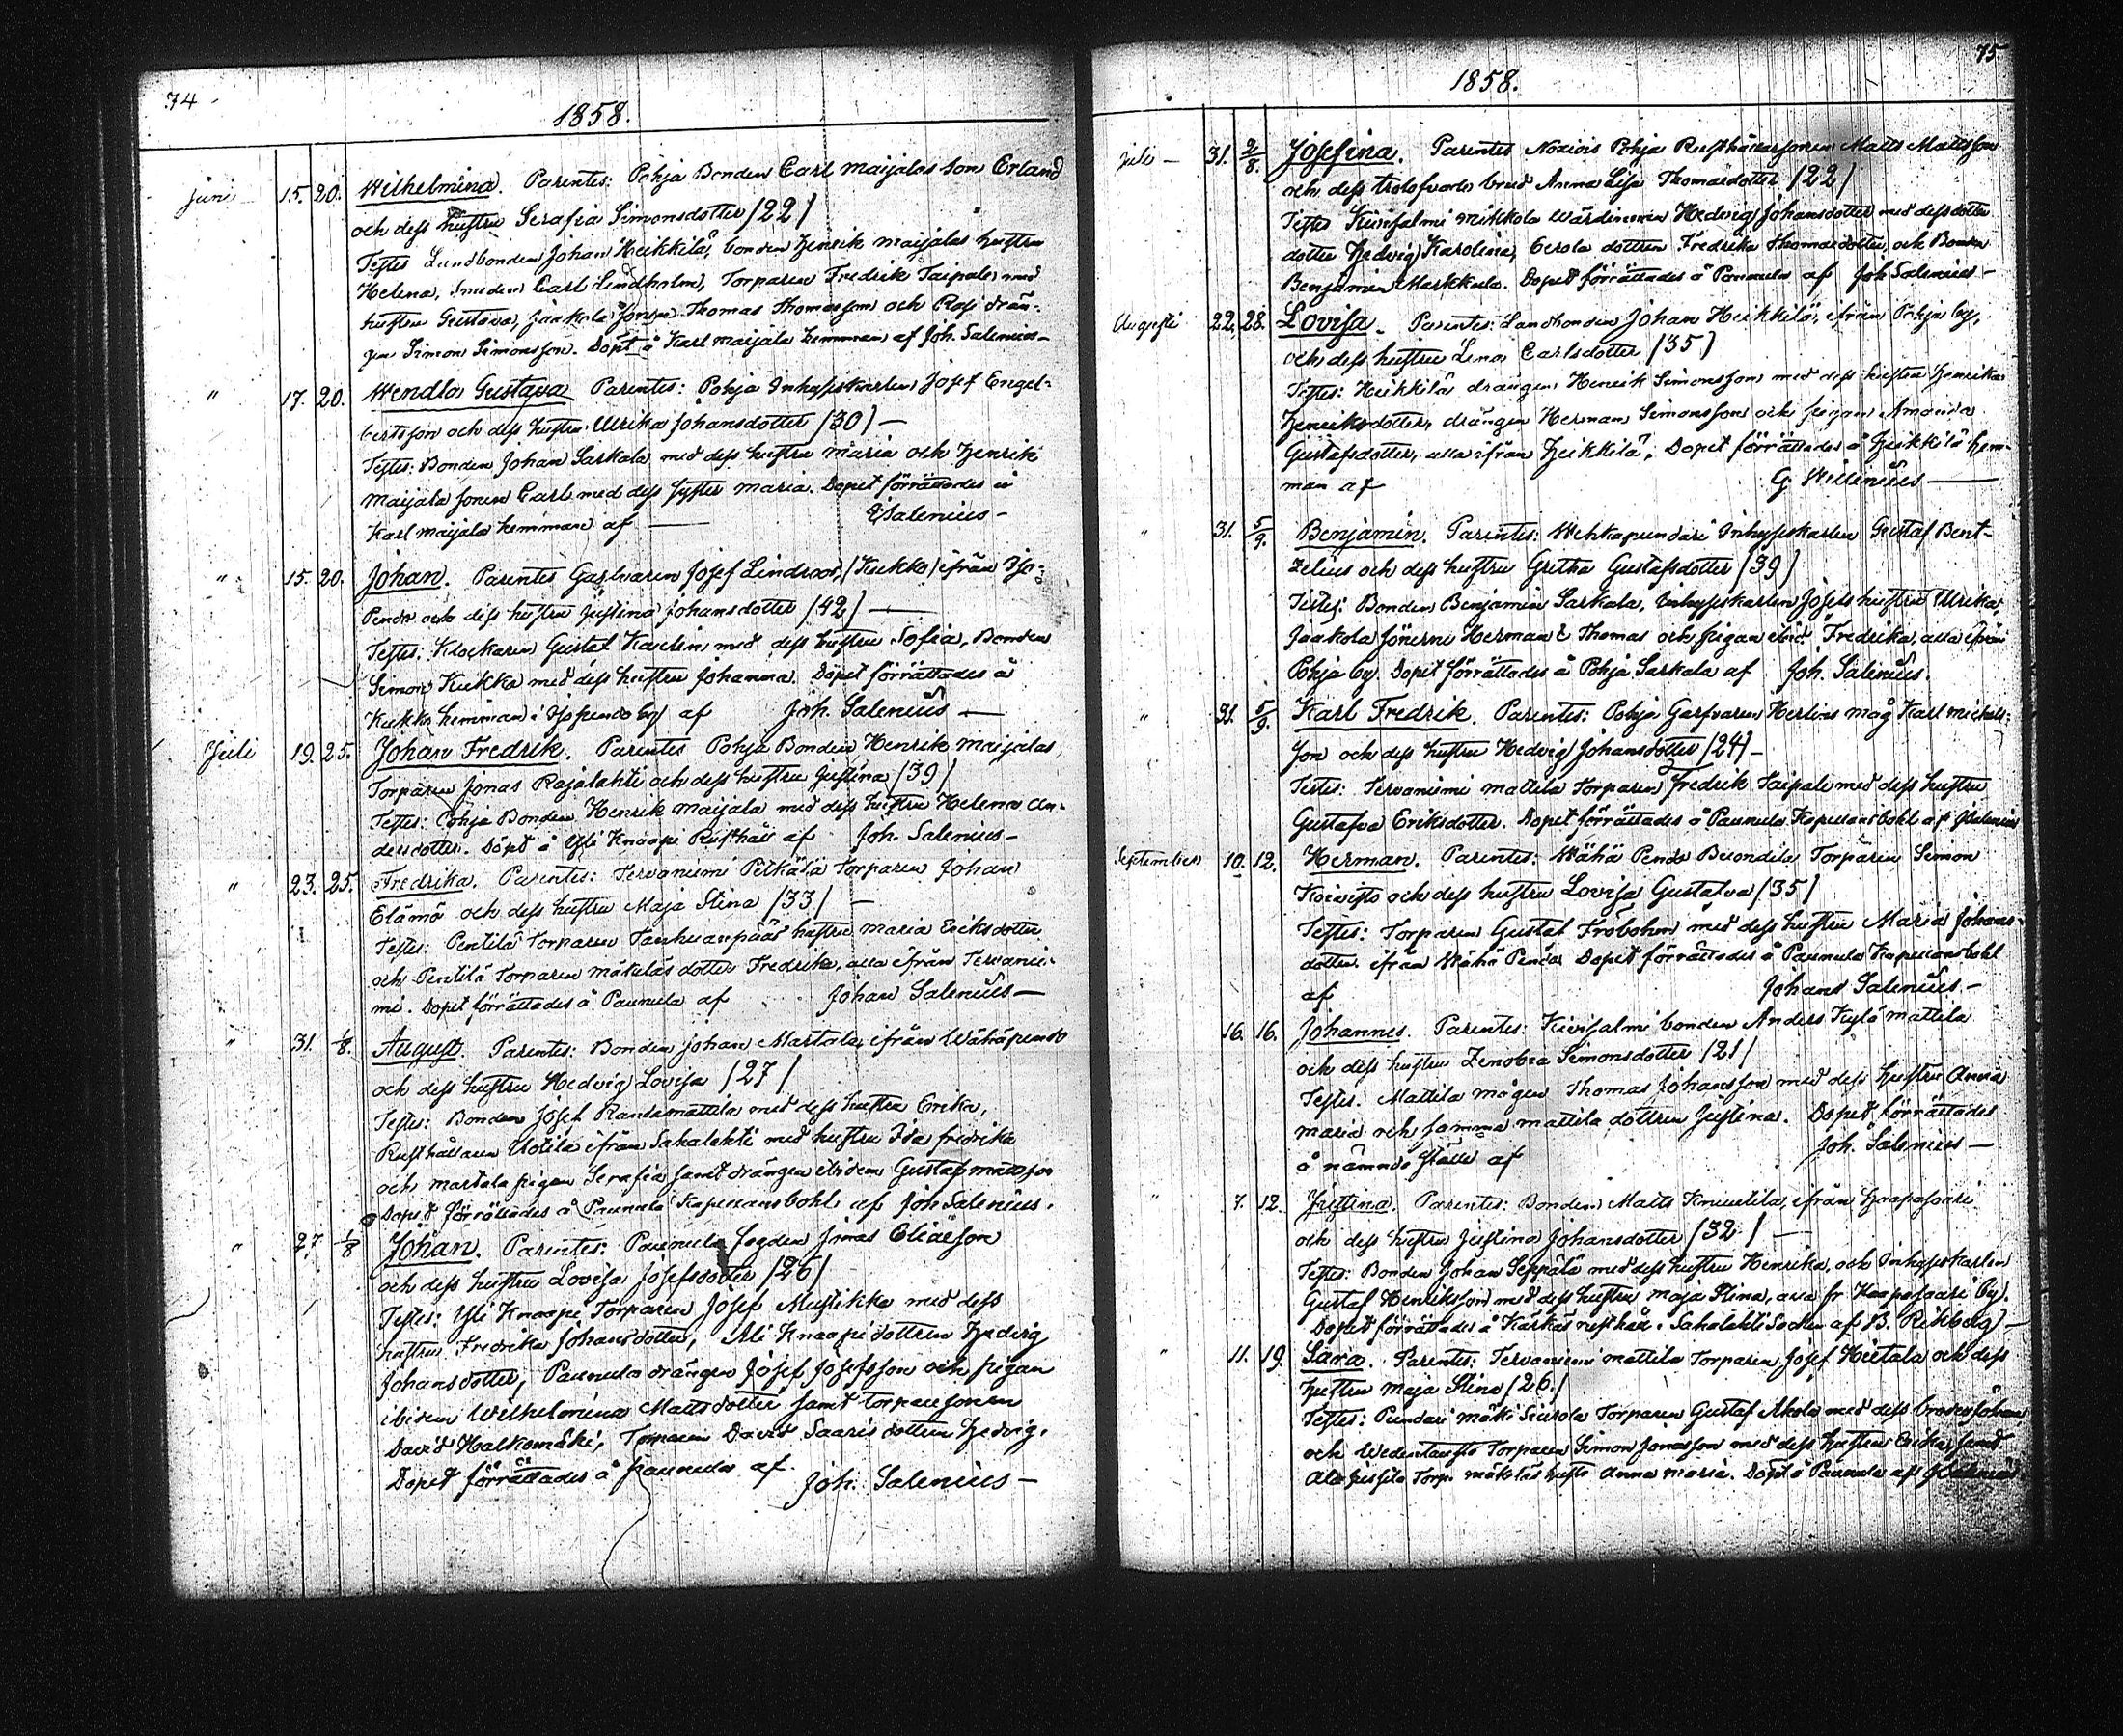 74
1858.
Juni 15. 20. Wilhelmina. Parentes: Pohja Bonden Carl Maijalas son Erland
och dess hustru Serafia Simonsdotter /22/
Testes Landbonden Johan Heikkilä, bonden Henrik Maijalas hustru
Helena, Smeden Carl Lindholm, Torparen Fredrik Taipale med
hustru Gustava, Jaakola Sonen Thomas Thomasson och drän-
gen Simon Simonsson. Döpt å Karl Maijala hemman af Joh. Salenius —
" 17. 20. Wendla Gustava Parentes: Pohja Inhysiskarlen Josef Engel-
bertsson och dess hustru Ulrika Johansdotter /30/ —
Testes: Bonden Johan Sarkala med dess hustru Maria och Henrik
Maijala sonen Carl med dess syster Maria. Dopet förrättades å
Karl Maijala hemman af — Salenius —
" 15. 20. Johan. Parentes Josef Lindroos, (Kukko) ifrån Iso-
Pendo och dess hustru Justina Johansdotter /42/ —
Testes: Klockaren Gustaf med dess hustru Sofia, Bonden
Simon Kukko med dess hustru Johanna. Dopet förrättades å
Kukko hemman i Isopendo by af Joh. Salenius —
Juli 19. 25. Johan Fredrik. Parentes Pohja Bonden Henrik Maijalas
Torparen Jonas Rajalahti och dess hustru Justina /39/
Testes: Pohja Bonden Henrik Maijala med dess hustru Helena An-
dersdotter. Döpt å Yli Knaapi Rusthåll af Joh. Salenius —
" 23. 25. Fredrika. Parentes: Tervaniemi Torparen Johan
Elämä och dess hustru Maja Stina /33/ —
Testes: Pentilä Torparen hustru Maria Eriksdotter
och Pentilä Torparen Mäkeläs dotter Fredrika, alla ifrån Tervanie-
mi. Dopet förrättades å Paunula af Johan Salenius —
" 31. 1/8. August. Parentes: Bonden Johan Martala, ifrån Wähäpendo
och dess hustru Hedvig Lovisa /27/
Testes: Bonden Josef Rantamattila med dess hustru Erika,
Rusthållaren Uotila ifrån Sahalahti med hustru Ida Fredrika
och Martala pigan Serafia samt drängen ibidem Gustaf Mattsson
Dopet förrättades å Paunula Kapellansbohl af Joh Salenius.
" 27 1/8 Johan. Parentes: Paunula Jonas Eliasson
och dess hustru Lovisa Josefsdotter /26/
Testes: Yli Knaapi Torparen Josef Mustikka med dess
hustru Fredrika Johansdotter, Ali Knaapi dottren Hedvig
Johansdotter, Paunula drängen Josef Josefsson och pigan
ibidem Wilhelmina Mattsdotter samt torparesonen
David Halkomäki, Torparen David Saaris dottren Hedvig.
Dopet förrättades å Paunula af Joh. Salenius —
75
1858.
Juli — 31. 2/8. Josefina. Parentes Pohja Rusthållarsonen Matts Mattsson
och dess trolofvade brud Anna Lisa Thomasdotter /22/
Testes Kuisfalmi Mikkola Wärdinnan Hedvig Johansdotter med dess dotter
dotter Hedvig Karolina, Eerola dottren Fredrika Thomasdotter, och Bonden
Benjamin Markkula. Dopet förrättades å Paunula af Joh Salenius —
Augusti 22. 28. Lovisa. Parentes: Landbonden Johan Heikkilä, ifrån Pohja by,
och dess hustru Lena Carlsdotter /35/
Testes: Heikkilä drängen Henrik Simonsson med dess hustru Henrika
Henriksdotter, drängen Herman Simonsson och pigan Amanda
Gustafsdotter, alla ifrån Heikkilä, Dopet förrättades å Heikkilä hem-
man af G. Wilenius —
" 31. 5/9. Benjamin. Parentes: Wehkapundari Inhysiskarlen Gustaf Bent-
zelius och dess hustru Gretha Gustafsdotter /39/
Testes: Bonden Benjamin Sarkala, Inhysiskarlen Josefs hustru Ulrika,
Jaakola sönerne Herman & Thomas och pigan ibid Fredrika, alla ifrån
Pohja by Dopet förrättades å Pohja Sarkala af Joh. Salenius.
" 31. 5/9. Karl Fredrik. Parentes: Pohja Garfvaren Herlins måg Karl Michels-
son och dess hustru Hedvig Johansdotter /24/ —
Testes: Tervaniemi Mattila Torparen Fredrik Taipale med dess hustru
Gustafva Eriksdotter. Dopet förrättades å Paunula Kapellansbohl af J Salenius
September 10. 12. Herman. Parentes: Wähä Pendo Torparen Simon
Koivisto och dess hustru Lovisa Gustafva /35/
Testes: Torparen Gustaf Fröbohm med dess hustru Maria Johans-
dotter ifrån Wähä Pendo Dopet förrättades å Paunula Kapellansbohl
af Johan Salenius —
16. 16. Johannes. Parentes: Kivisalmi bonden Anders Kylä Mattila
och dess hustru Zenobia Simonsdotter /21/
Testes: Mattila mågen Thomas Johansson med dess hustru Anna
Maria och samma Mattila dottren Justina. Dopet förrättades
å nämnde ställe af Joh. Salenius —
" 7. 12. Justina. Parentes: Bonden Matts Knuutila, ifrån Haapasaari
och dess hustru Justina Johansdotter /32/ —
Testes: Bonden Johan Seppälä med dess hustru Henrika, och Inhysiskarlen
Gustaf Henriksson med dess hustru Maja Stina, alla fr. Haapasaari by.
Dopet förrättades å Kärkäs rusthåll i Sahalahti Socken af B. Rihberg —
" 11. 19. Sara. Parentes: Tervaniemi Mattila Torparen Josef Hietala och dess
hustru Maja Stina /26/
Testes: Pundari Mäki Torparen Gustaf Ahola med dess broder Johan
och Torparen Simon Jonasson med dess hustru Erika, samt
Torp. Mäkeläs hustru Anna Maria. Döpt å Paunula af J Salenius